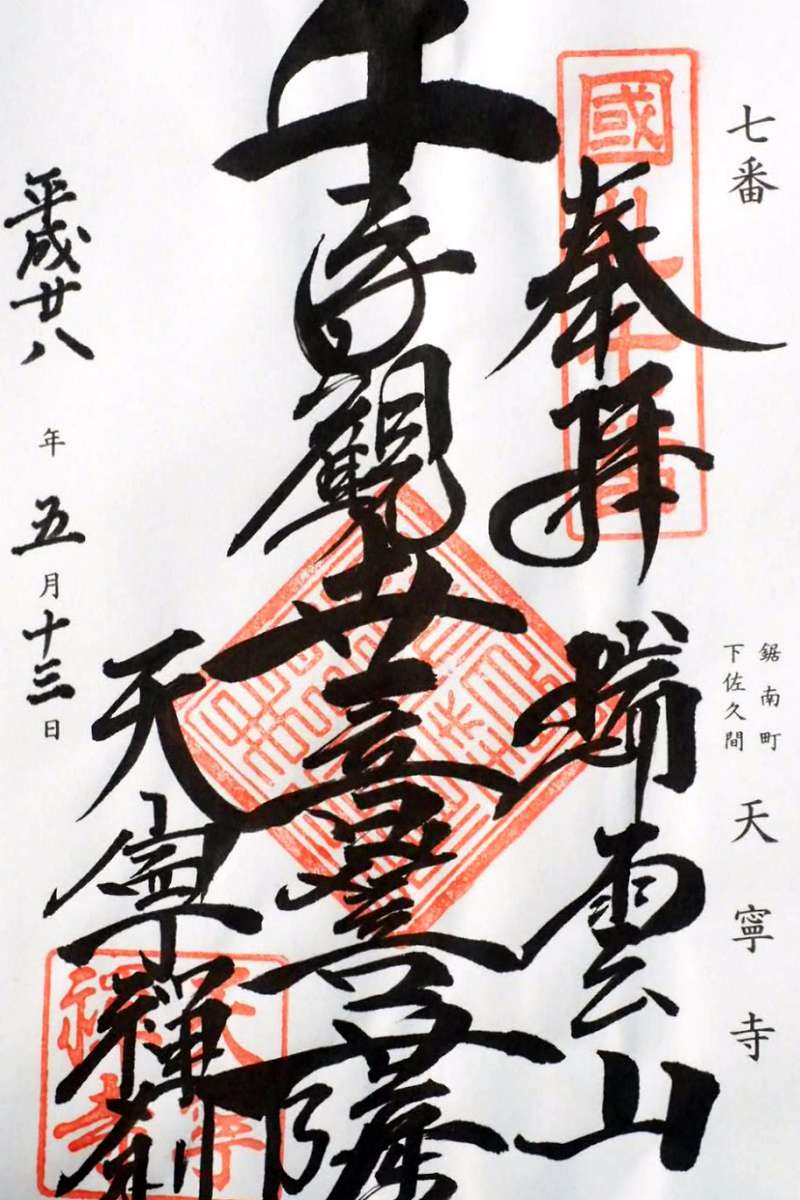 七番
鋸南町
下佐久間
天寧寺
奉拝
瑞雲山
千手觀世音菩薩
天寧禅寺
平成廿八年五月十三日
國